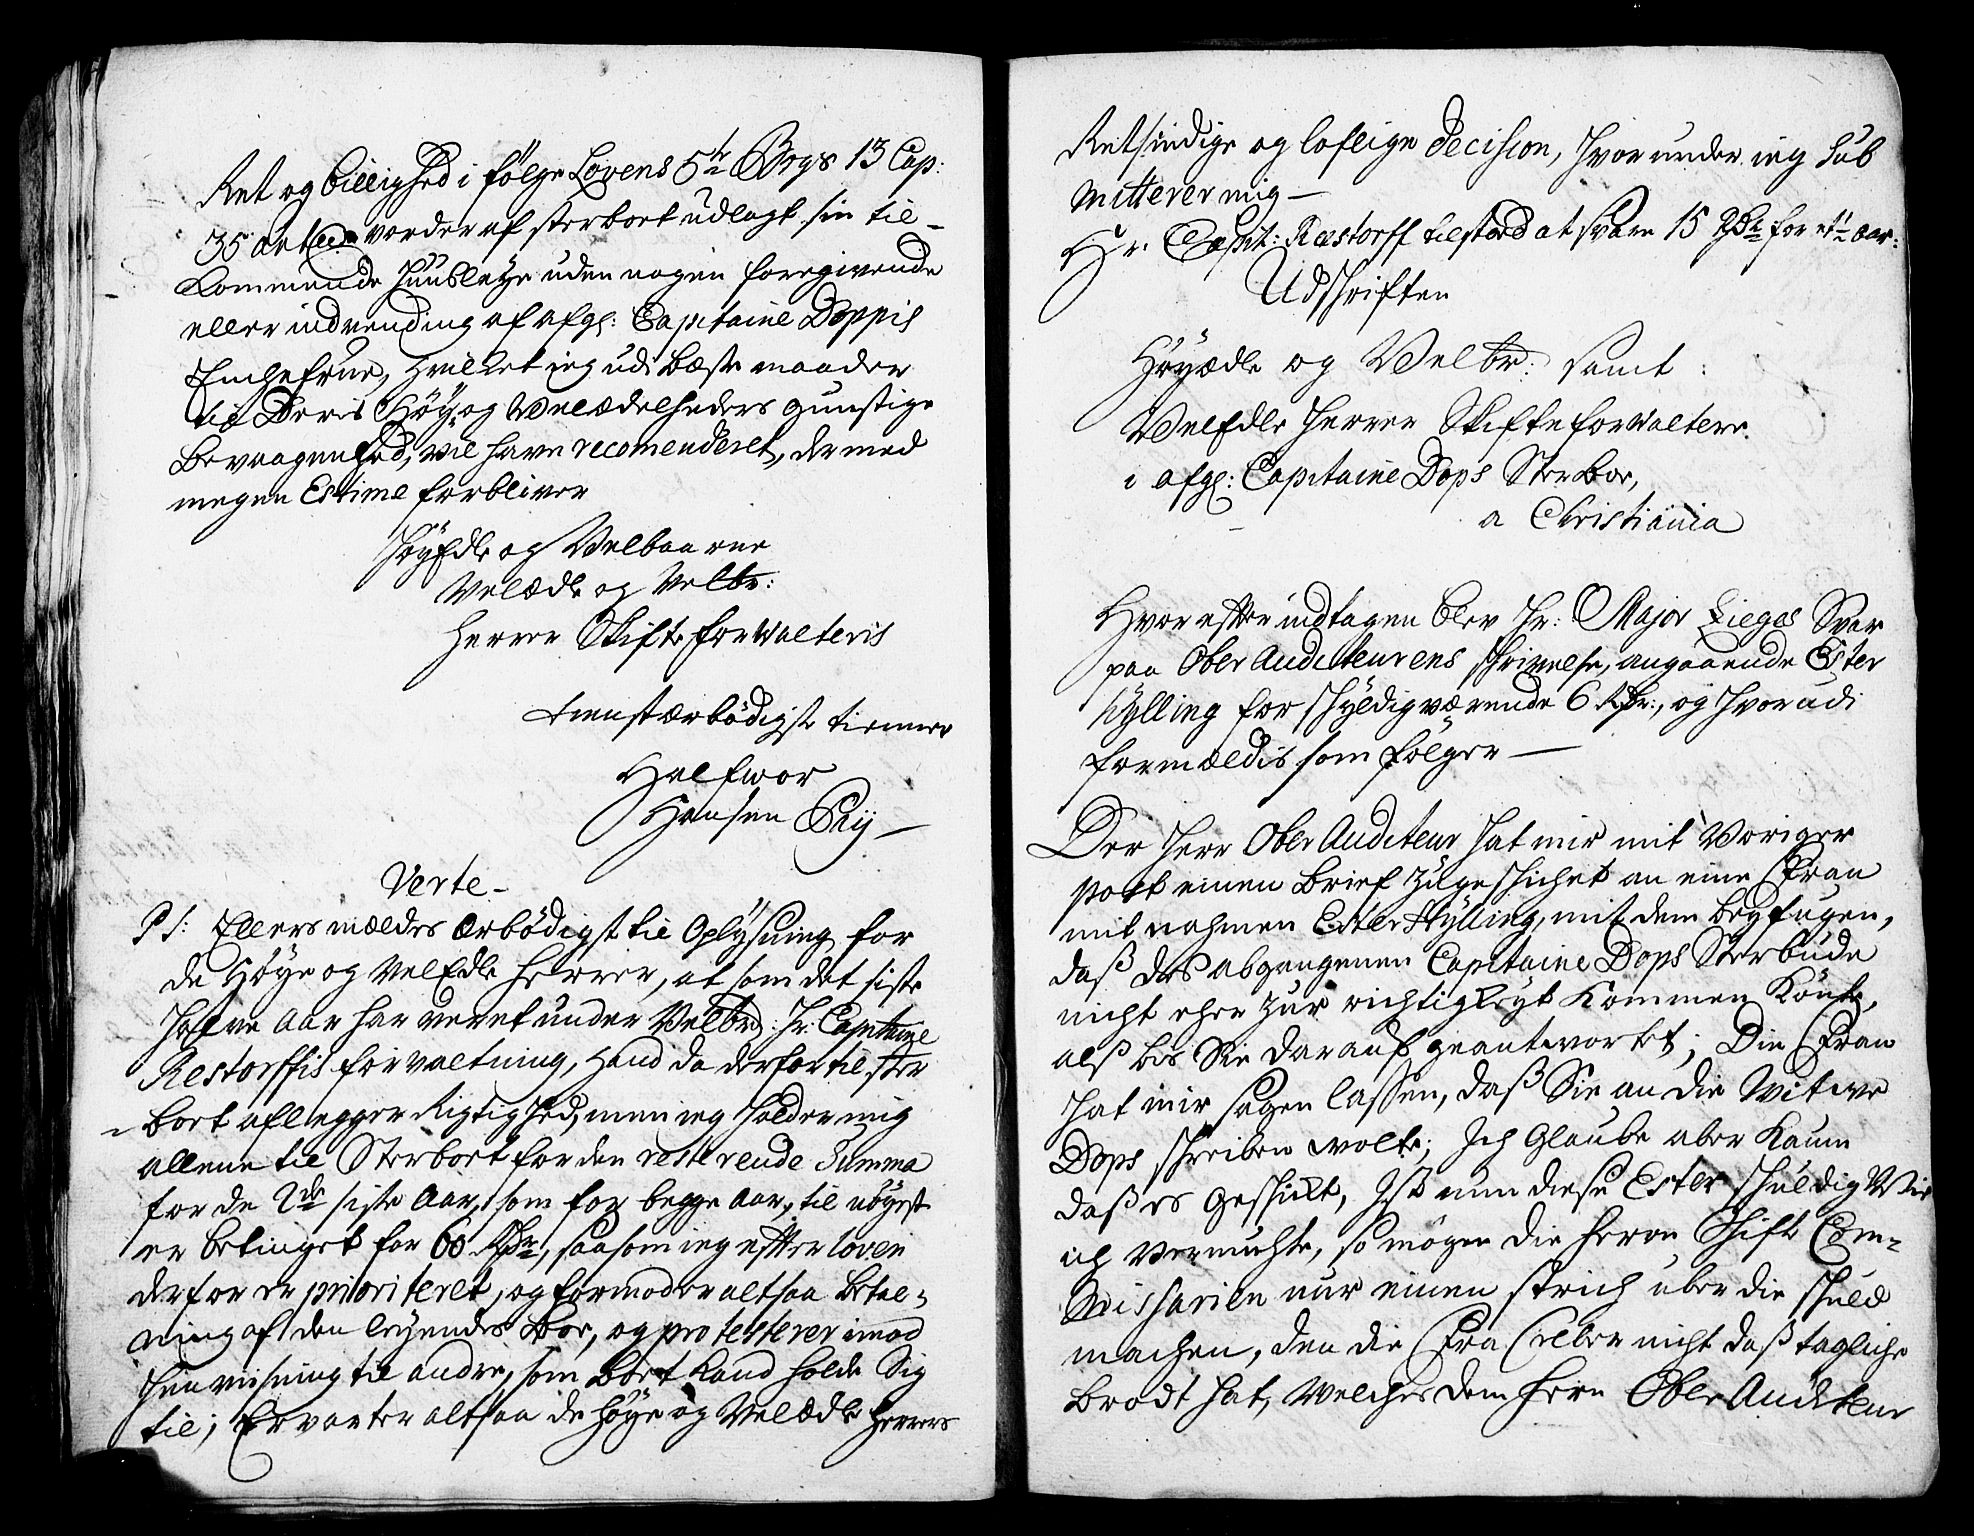 Ret og billighed i følge Lovens 5te Bogs 13 Cap:
35 art: vorder af sterboet udlagt sin til-
kommende Huusleye uden nogen foregivende
eller indvending af afg: Capitaine Doppis
Enchefrue, hvilket ieg udi beste maader
til Deris Høy og Velædelheders gunstige
bevaagenhed, vil have recomenderet, der med
megen Estime forbliver
HøyEdle og Velbaarne
Velædle og Velbr:
Herrer Skifte forwalteris
tienstærbødigste tienner
Halfwor
Hansen Riy
Verte-
PS: Ellers meldes ærbødigst til Oplysning for
de Høye og VelEdle Herrer, at som det siste
halfve Aar har veret under Velbr: Hr: Capitaine
Restorffis forvaltning, hand da derfor til ster
boet aflegger Rigtighed, men ieg holder mig
allene til Sterboet for den resterende Summa
for de 2de siste Aar, som for begge Aar, til ubygest
er betinget for 60 Rdr, saasom ieg efter loven
derfor er prioriteret, og formoder altsaa betal-
ning af den leyendes Boe, og protesterer imod
henviisning til andre, som Boet kand holde Sig
til; Ervarter altsaa de høye og Velædle Herrers
Retsindige og loflige Decision, hvor under ieg sub
mitterer mig-
Hr. Capit: Restorff tilstoed at svare 15 Rdr for et ½ aar:
Udschriften
Høyædle og Velbr: samt
VelEdle Herrer Skifteforwaltere
i afg: Capitaine Dops Sterboe,
a Christiania
Hvor efter indtagen blev Hr: Major Lieges Svar
paa Ober Auditeurens schrivelse, angaaende Ester
Kylling for schyldigværende 6 Rdr:, og hvor udi
formældis som følger-
Der Herr Ober Auditeur hat mir mit Voriger
Post einen Brief zugeschichet an eine Frau
mit nahmen Ester Kylling, mit dem beyfugen,
daß des abgangenen Capitaine Dops Sterbude
nicht eher zur richtigkeyt kommen könte,
alß bis Sie darauf geantwortet; Die Frau
hat mir sagen lassen, daß Sie an die Witwe
Dops schreiben wolte; Ich glaube aber kaum
daß es geschicht, Ist nun diese Ester schuldig Wie
ich Vermuhte, so mögen die Herrn Schift Com-
missarien nur einen strich uber die schuld
machen, den die Fra selber nicht daß tagliche
brodt hat, Welches dem Herrn Ober Auditeur